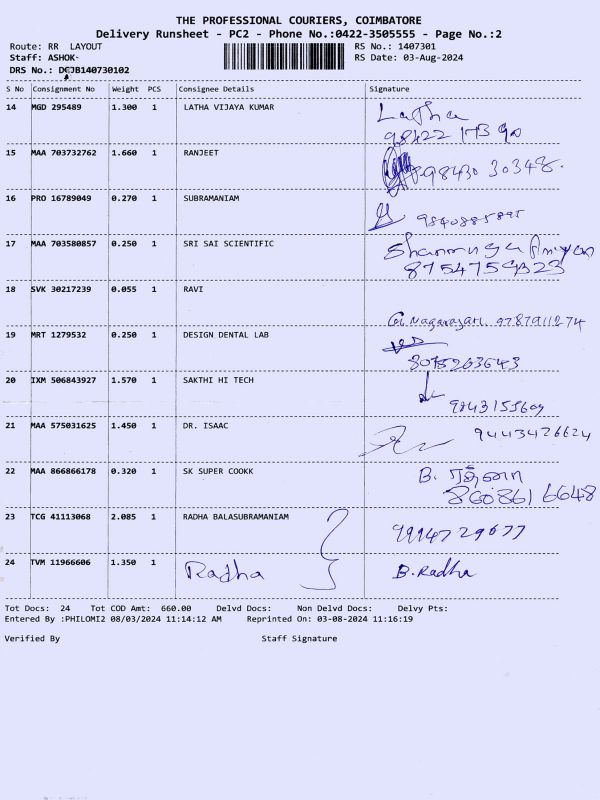 THE PROFESSIONAL COURIERS, COIMBATORE
Delivery Runsheet - PC2 - Phone No.:0422-3505555 - Page No.:2
Route: RR LAYOUT
RS No.: 1407301
Staff: ASHOK
RS Date: 03-Aug-2024
DRS No.: DCJB140730102
S No Consignment No Weight PCS Consignee Details Signature
14 MGD 295489 1.300 1 LATHA VIJAYA KUMAR Latha
15 MAA 703732762 1.660 1 RANJEET 98430 30348.
16 PRO 16789049 0.270 1 SUBRAMANIAM
17 MAA 703580857 0.250 1 SRI SAI SCIENTIFIC
8754759323
18 SVK 30217239 0.055 1 RAVI
Nagarajan. 9787911274
19 MRT 1279532 0.250 1 DESIGN DENTAL LAB
8075263643
20 IXM 506843927 1.570 1 SAKTHI HI TECH
21 MAA 575031625 1.450 1 DR. ISAAC 9443426624
22 MAA 866866178 0.320 1 SK SUPER COOKK B.
860861 6648
23 TCG 41113068 2.085 1 RADHA BALASUBRAMANIAM
24 TVM 11966606 1.350 1 Radha B.Radha
Tot Docs: 24 Tot COD Amt: 660.00 Delvd Docs: Non Delvd Docs: Delvy Pts:
Entered By :PHILOMI2 08/03/2024 11:14:12 AM Reprinted On: 03-08-2024 11:16:19
Verified By Staff Signature